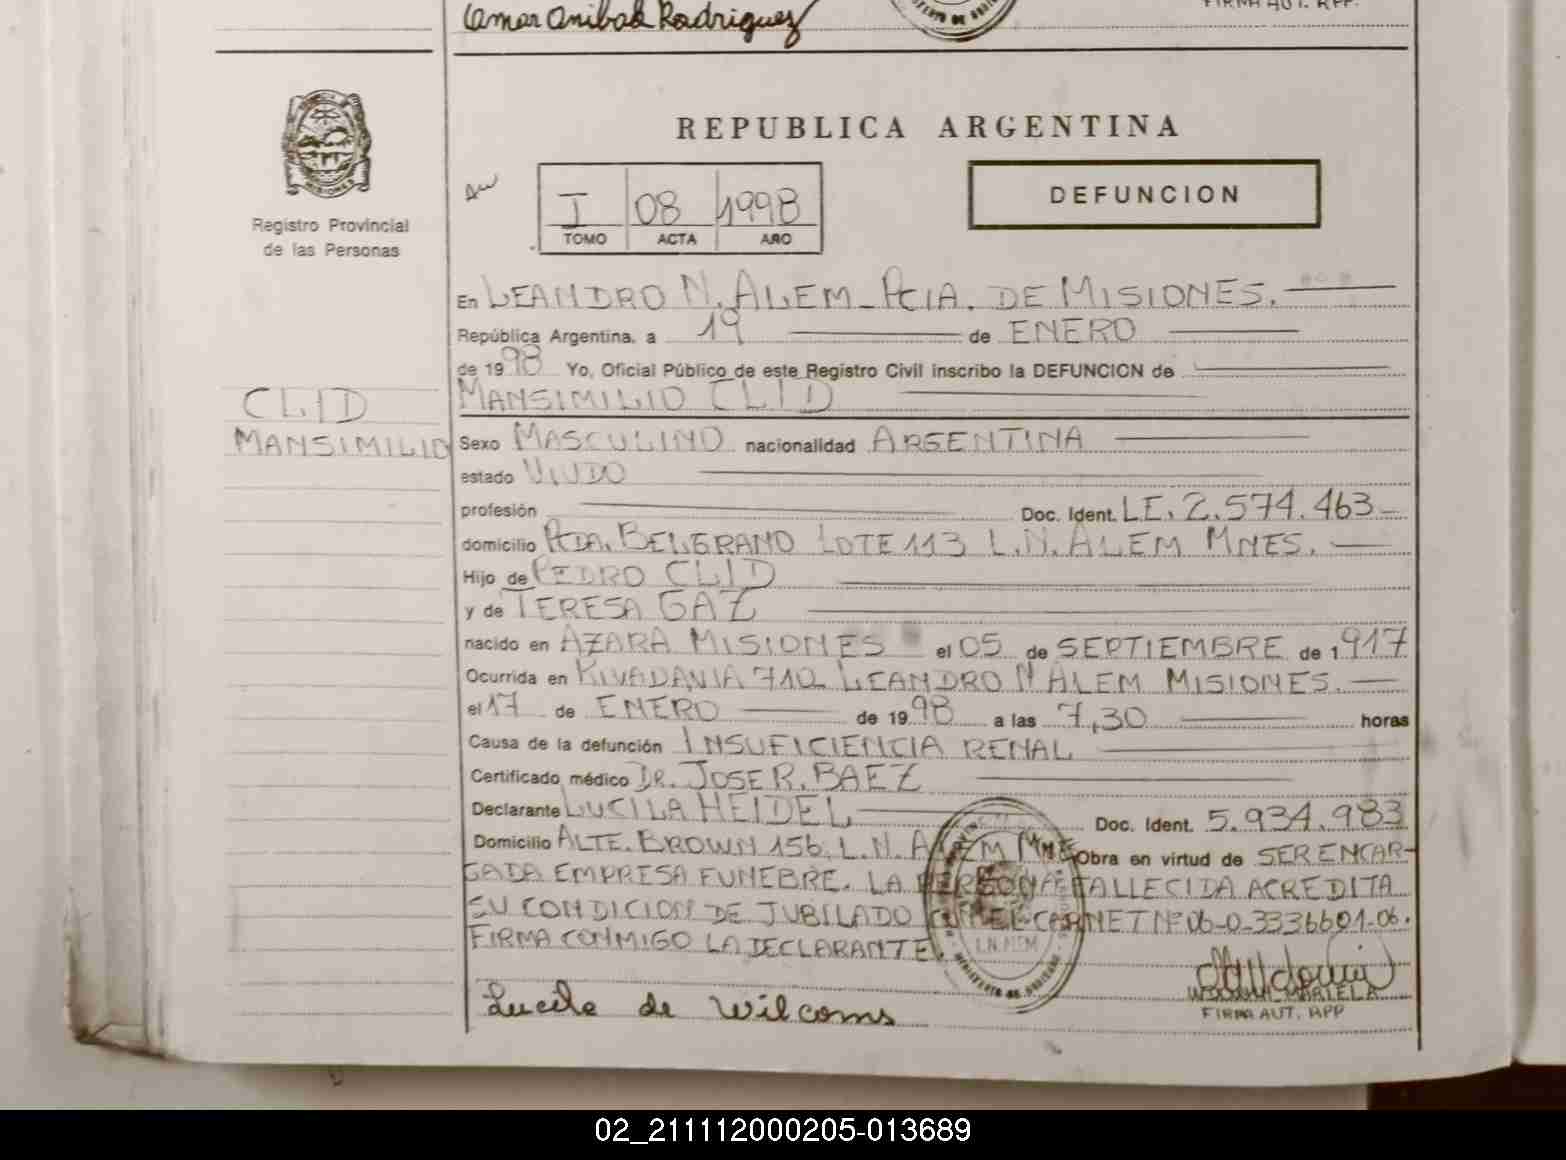 Omar Anibal Rodriguez
FIRMA AUT. RPP.
REPUBLICA ARGENTINA
MISIONES
Registro Provincial
de las Personas
I 08 1998
TOMO ACTA AÑO
DEFUNCION
En LEANDRO N. ALEM - PCIA. DE MISIONES.
República Argentina, a 19 de ENERO
de 1998 Yo, Oficial Público de este Registro Civil inscribo la DEFUNCION de
MANSIMILIO CLID
CLID
MANSIMILIO
Sexo MASCULINO nacionalidad ARGENTINA
estado VIUDO
profesión Doc. Ident. LE. 2.574.463
domicilio PDA. BELGRANO LOTE 113 L.N. ALEM MNES.
Hijo de PEDRO CLID
y de TERESA GAZ
nacido en AZARA MISIONES el 05 de SEPTIEMBRE de 1917
Ocurrida en RIVADAVIA 710 LEANDRO N ALEM MISIONES.
el 17 de ENERO de 1998 a las 7,30 horas
Causa de la defunción INSUFICIENCIA RENAL
Certificado médico DR. JOSE R. BAEZ
Declarante LUCILA HEIDEL Doc. Ident. 5.934.983
Domicilio ALTE. BROWN 156, L.N. ALEM MNES Obra en virtud de SER ENCAR-
GADA EMPRESA FUNEBRE. LA PERSONA FALLECIDA ACREDITA
SU CONDICION DE JUBILADO CON EL CARNET Nº 06-0-3336601-06.
FIRMA CONMIGO LA DECLARANTE.
L.N. ALEM
Lucila de Wilcoms
MARIELA
FIRMA AUT. RPP
02_211112000205-013689